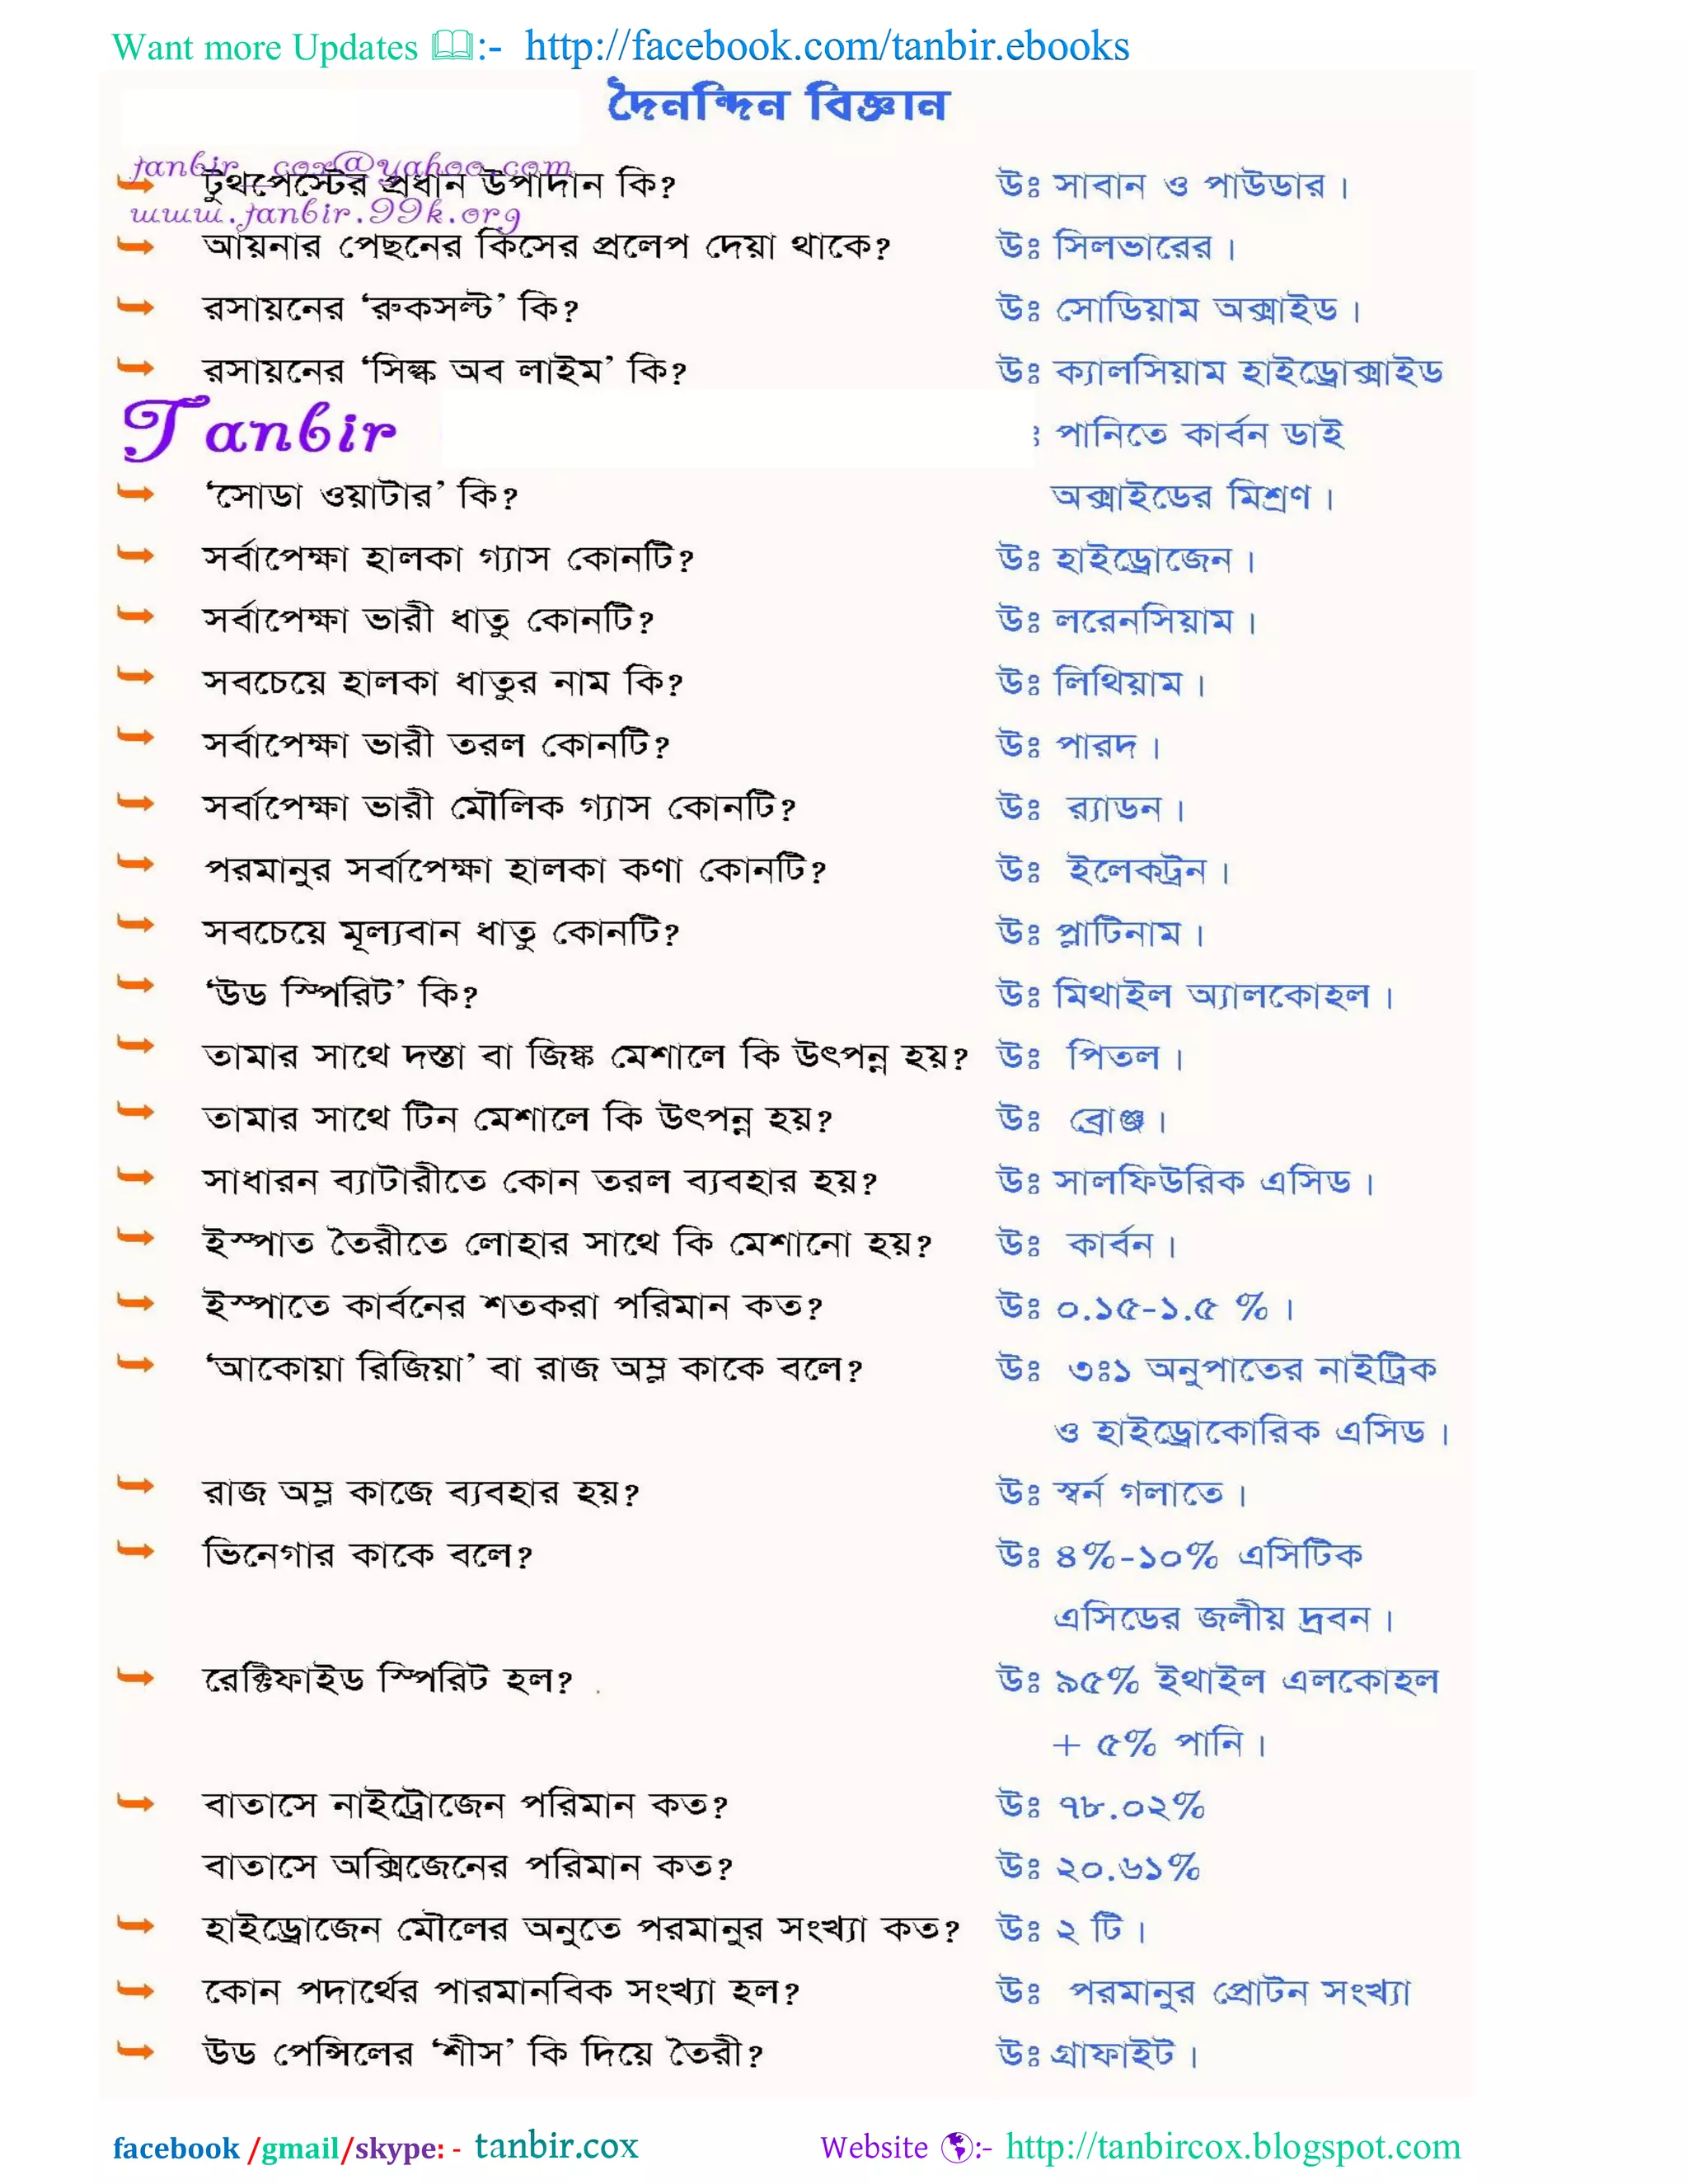 Want more Updates :- http://facebook.com/tanbir.ebooks
দৈনন্দিন বিজ্ঞান
tanbir_cox@yahoo.com
টুথপেস্টের প্রধান উপাদান কি? উঃ সাবান ও পাউডার।
www.tanbir.99k.org
আয়নার পেছনের কিসের প্রলেপ দেয়া থাকে? উঃ সিলভারের।
রসায়নের ‘রুকসল্ট’ কি? উঃ সোডিয়াম অক্সাইড।
রসায়নের ‘সিল্ক অব লাইম’ কি? উঃ ক্যালসিয়াম হাইড্রোক্সাইড
Tanbir ঃ পানিতে কার্বন ডাই
‘সোডা ওয়াটার’ কি? অক্সাইডের মিশ্রণ।
সর্বাপেক্ষা হালকা গ্যাস কোনটি? উঃ হাইড্রোজেন।
সর্বাপেক্ষা ভারী ধাতু কোনটি? উঃ লরেনসিয়াম।
সবচেয়ে হালকা ধাতুর নাম কি? উঃ লিথিয়াম।
সর্বাপেক্ষা ভারী তরল কোনটি? উঃ পারদ।
সর্বাপেক্ষা ভারী মৌলিক গ্যাস কোনটি? উঃ র‍্যাডন।
পরমানুর সর্বাপেক্ষা হালকা কণা কোনটি? উঃ ইলেকট্রন।
সবচেয়ে মূল্যবান ধাতু কোনটি? উঃ প্লাটিনাম।
‘উড স্পিরিট’ কি? উঃ মিথাইল অ্যালকোহল।
তামার সাথে দস্তা বা জিঙ্ক মেশালে কি উৎপন্ন হয়? উঃ পিতল।
তামার সাথে টিন মেশালে কি উৎপন্ন হয়? উঃ ব্রোঞ্জ।
সাধারন ব্যাটারীতে কোন তরল ব্যবহার হয়? উঃ সালফিউরিক এসিড।
ইস্পাত তৈরীতে লোহার সাথে কি মেশানো হয়? উঃ কার্বন।
ইস্পাতে কার্বনের শতকরা পরিমান কত? উঃ ০.১৫-১.৫ %।
‘আকোয়া রিজিয়া’ বা রাজ অম্ল কাকে বলে? উঃ ৩ঃ১ অনুপাতের নাইট্রিক
ও হাইড্রোকোরিক এসিড।
রাজ অম্ল কাজে ব্যবহার হয়? উঃ স্বর্ন গলাতে।
ভিনেগার কাকে বলে? উঃ ৪%-১০% এসিটিক
এসিডের জলীয় দ্রবন।
রেক্টিফাইড স্পিরিট হল? উঃ ৯৫% ইথাইল এলকোহল
+ ৫% পানি।
বাতাসে নাইট্রোজেন পরিমান কত? উঃ ৭৮.০২%
বাতাসে অক্সিজেনের পরিমান কত? উঃ ২০.৬১%
হাইড্রোজেন মৌলের অনুতে পরমানুর সংখ্যা কত? উঃ ২ টি।
কোন পদার্থের পারমানবিক সংখ্যা হল? উঃ পরমানুর প্রোটন সংখ্যা
উড পেন্সিলের ‘শীস’ কি দিয়ে তৈরী? উঃ গ্রাফাইট।
facebook /gmail/skype: - tanbir.cox Website :- http://tanbircox.blogspot.com